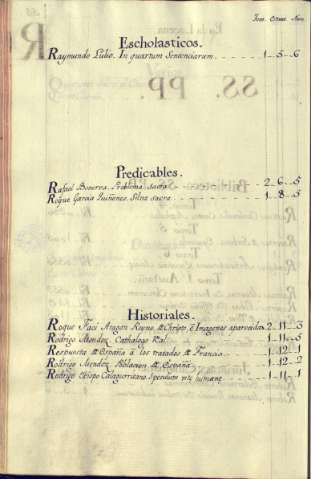 Tom. Estant. Num.
Escholasticos.
Raymundo Lulio. In quartum Sentenciarum. 1 - 5 - 6
Predicables.
Rafael Boverva. Problema sacra 2 - 6 - 5
Roque Garcia Quiñones Silva sacra 1 - 8 - 5
Historiales.
Roque Faci Aragon Reyno de Christo è Imagenes aparecidas 2 - 11 - 3
Rodrigo Mendez Cathalogo Rl. 1 - 11 - 5
Respuesta de España à los tratados de Francia 1 - 12 - 1
Rodrigo Mendez Poblacion de España 1 - 12 - 2
Rodrigo Obispo Calaguritano Speculum vite humane 1 - 11 - 1